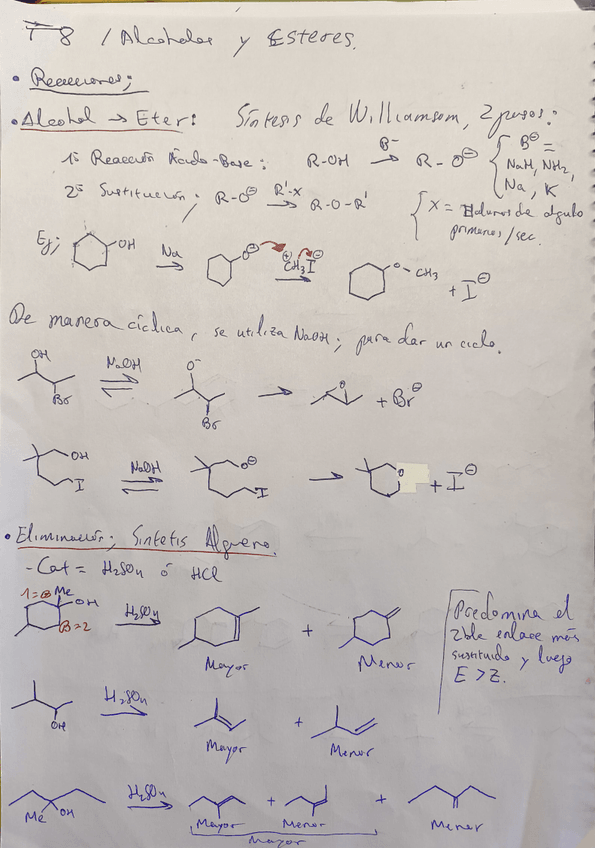 T 8 / Alcoholes y Esteres.
• Reacciones;
• Alcohol → Eter: Síntesis de Williamson, 2 pasos:
1º Reacción Ácido-Base: R-OH B⁻ → R-O⊖ { B⊖ = NaH, NH₂, Na, K
2º Sustitución; R-O⊖ R'-X → R-O-R' { X = Haluros de alquilo primarios/sec.
Ej; OH Na → O⊖ ⊕CH₃I⊖ → O-CH₃ + I⊖
De manera cíclica, se utiliza NaOH; para dar un ciclo.
OH Br NaOH ⇌ O⁻ Br → O + Br⊖
OH I NaOH ⇌ O⊖ I → O + I⊖
• Eliminación; Síntetis Alqueno.
- Cat = H₂SO₄ ó HCl
Me OH B=2 H₂SO₄ → Mayor + Menor
Predomina el
2ble enlace más
sustituido y luego
E > Z.
OH H₂SO₄ → Mayor + Menor
Me OH H₂SO₄ → Mayor + Menor + Menor
Mayor